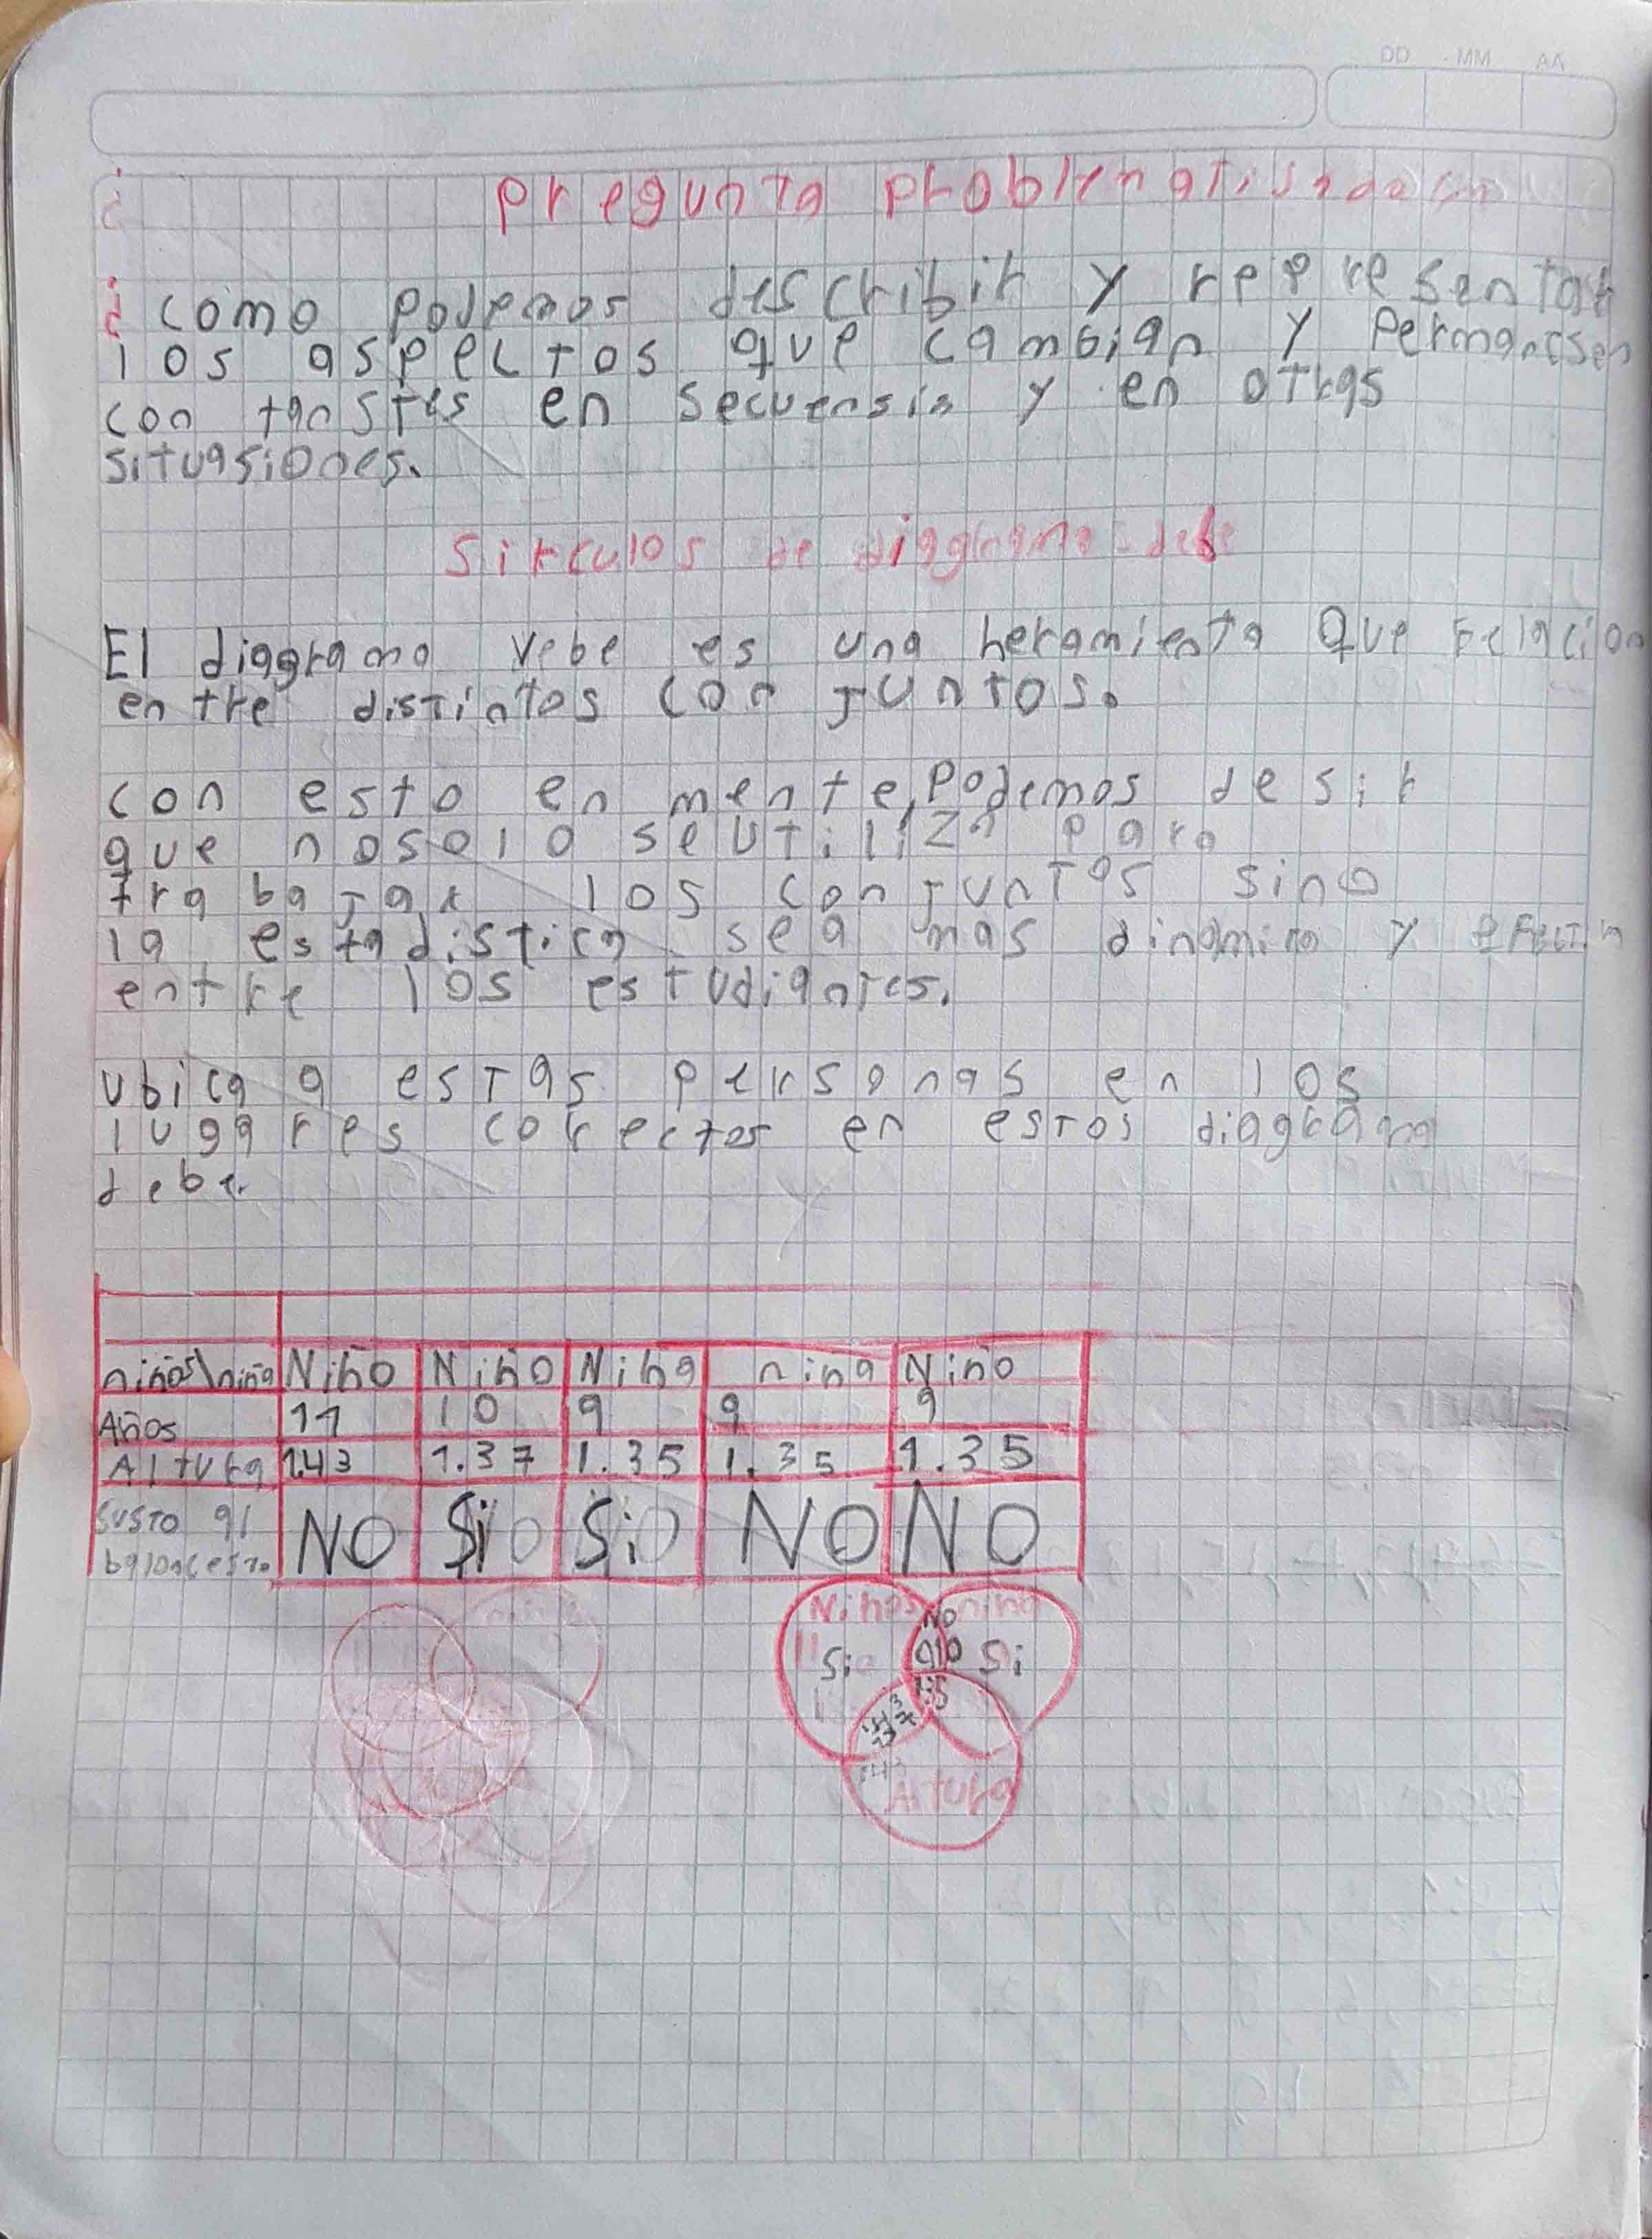 DD MM AA
¿ pregunta
¿como podemos describir y representar
los aspectos que cambian y permanessen
con tanstes en secuensia y en otras
situasiones.
Sirculos de diagrama debe
El diagrama vebe es una heramienta que relacion
entre distintos conjuntos.
con esto en mente, podemos desir
que nosolo seutiliza para
trabajar los conjuntos sino
la estadistica sea mas dinamica y
entre los estudiantes.
ubica a estas personas en los
lugares corectos en estos diagrama
debe.
niños\niña Niño Niño Niña niña Niño
Años 11 10 9 9 9
Altura 1.43 1.37 1.35 1.35 1.35
Gusto al baloncesto NO Si Si NO NO
Niños NO niña
Si 910 Si
Altura